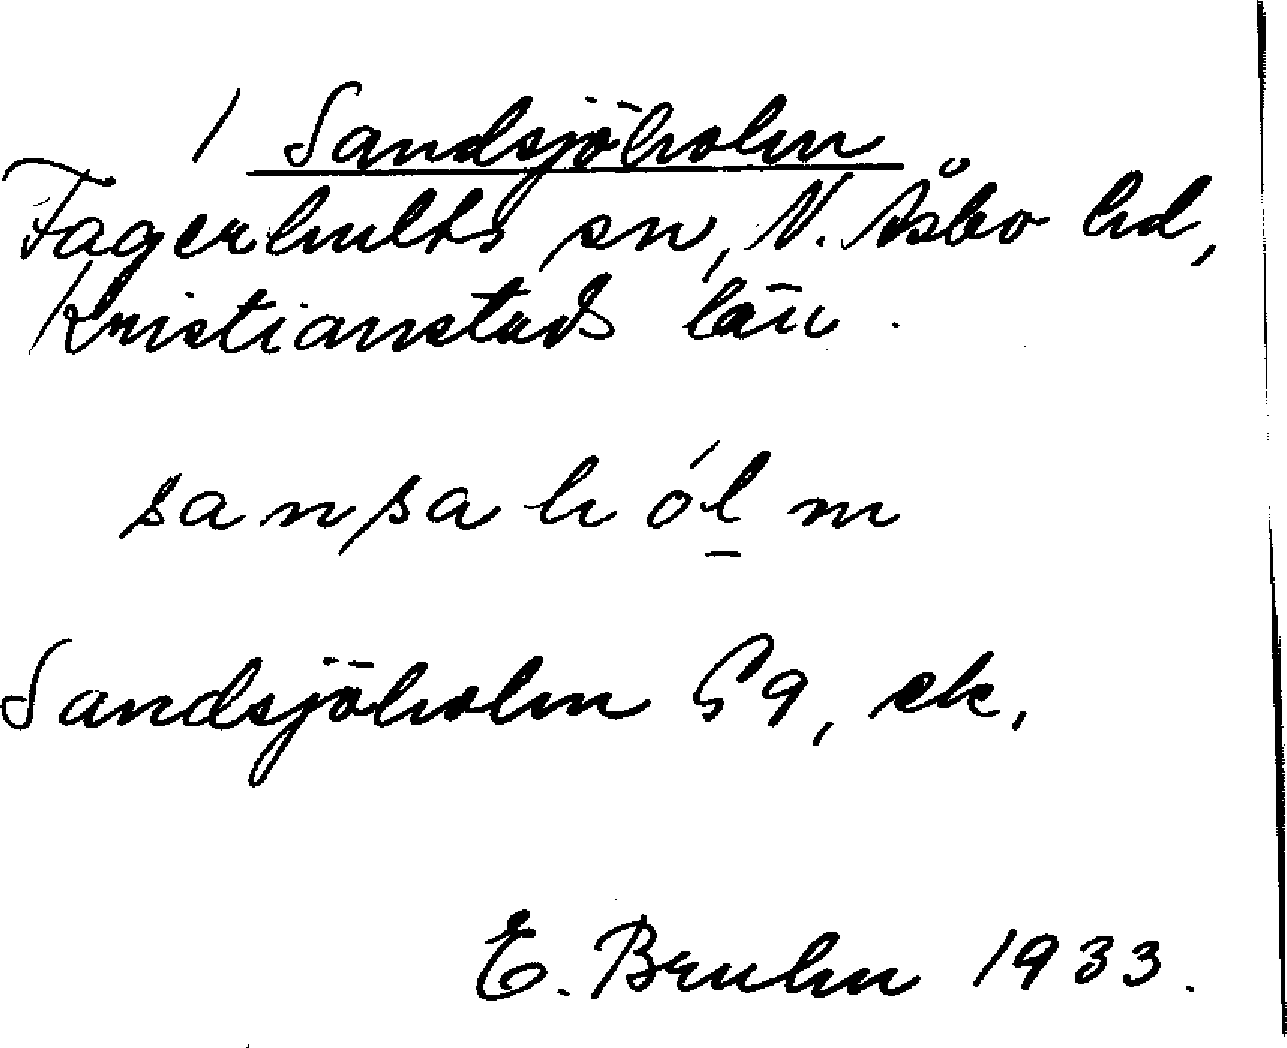 / Sandsjöholm
Fagerhults sn, N. Åsbo hd,
Kristianstads län.
sansahólm
Sandsjöholm Gg, ek.
E. Bruhn 1933.